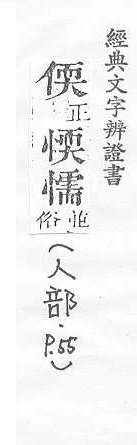 經典文字辨證書
偄正愞懦並俗
(人部．P.55)